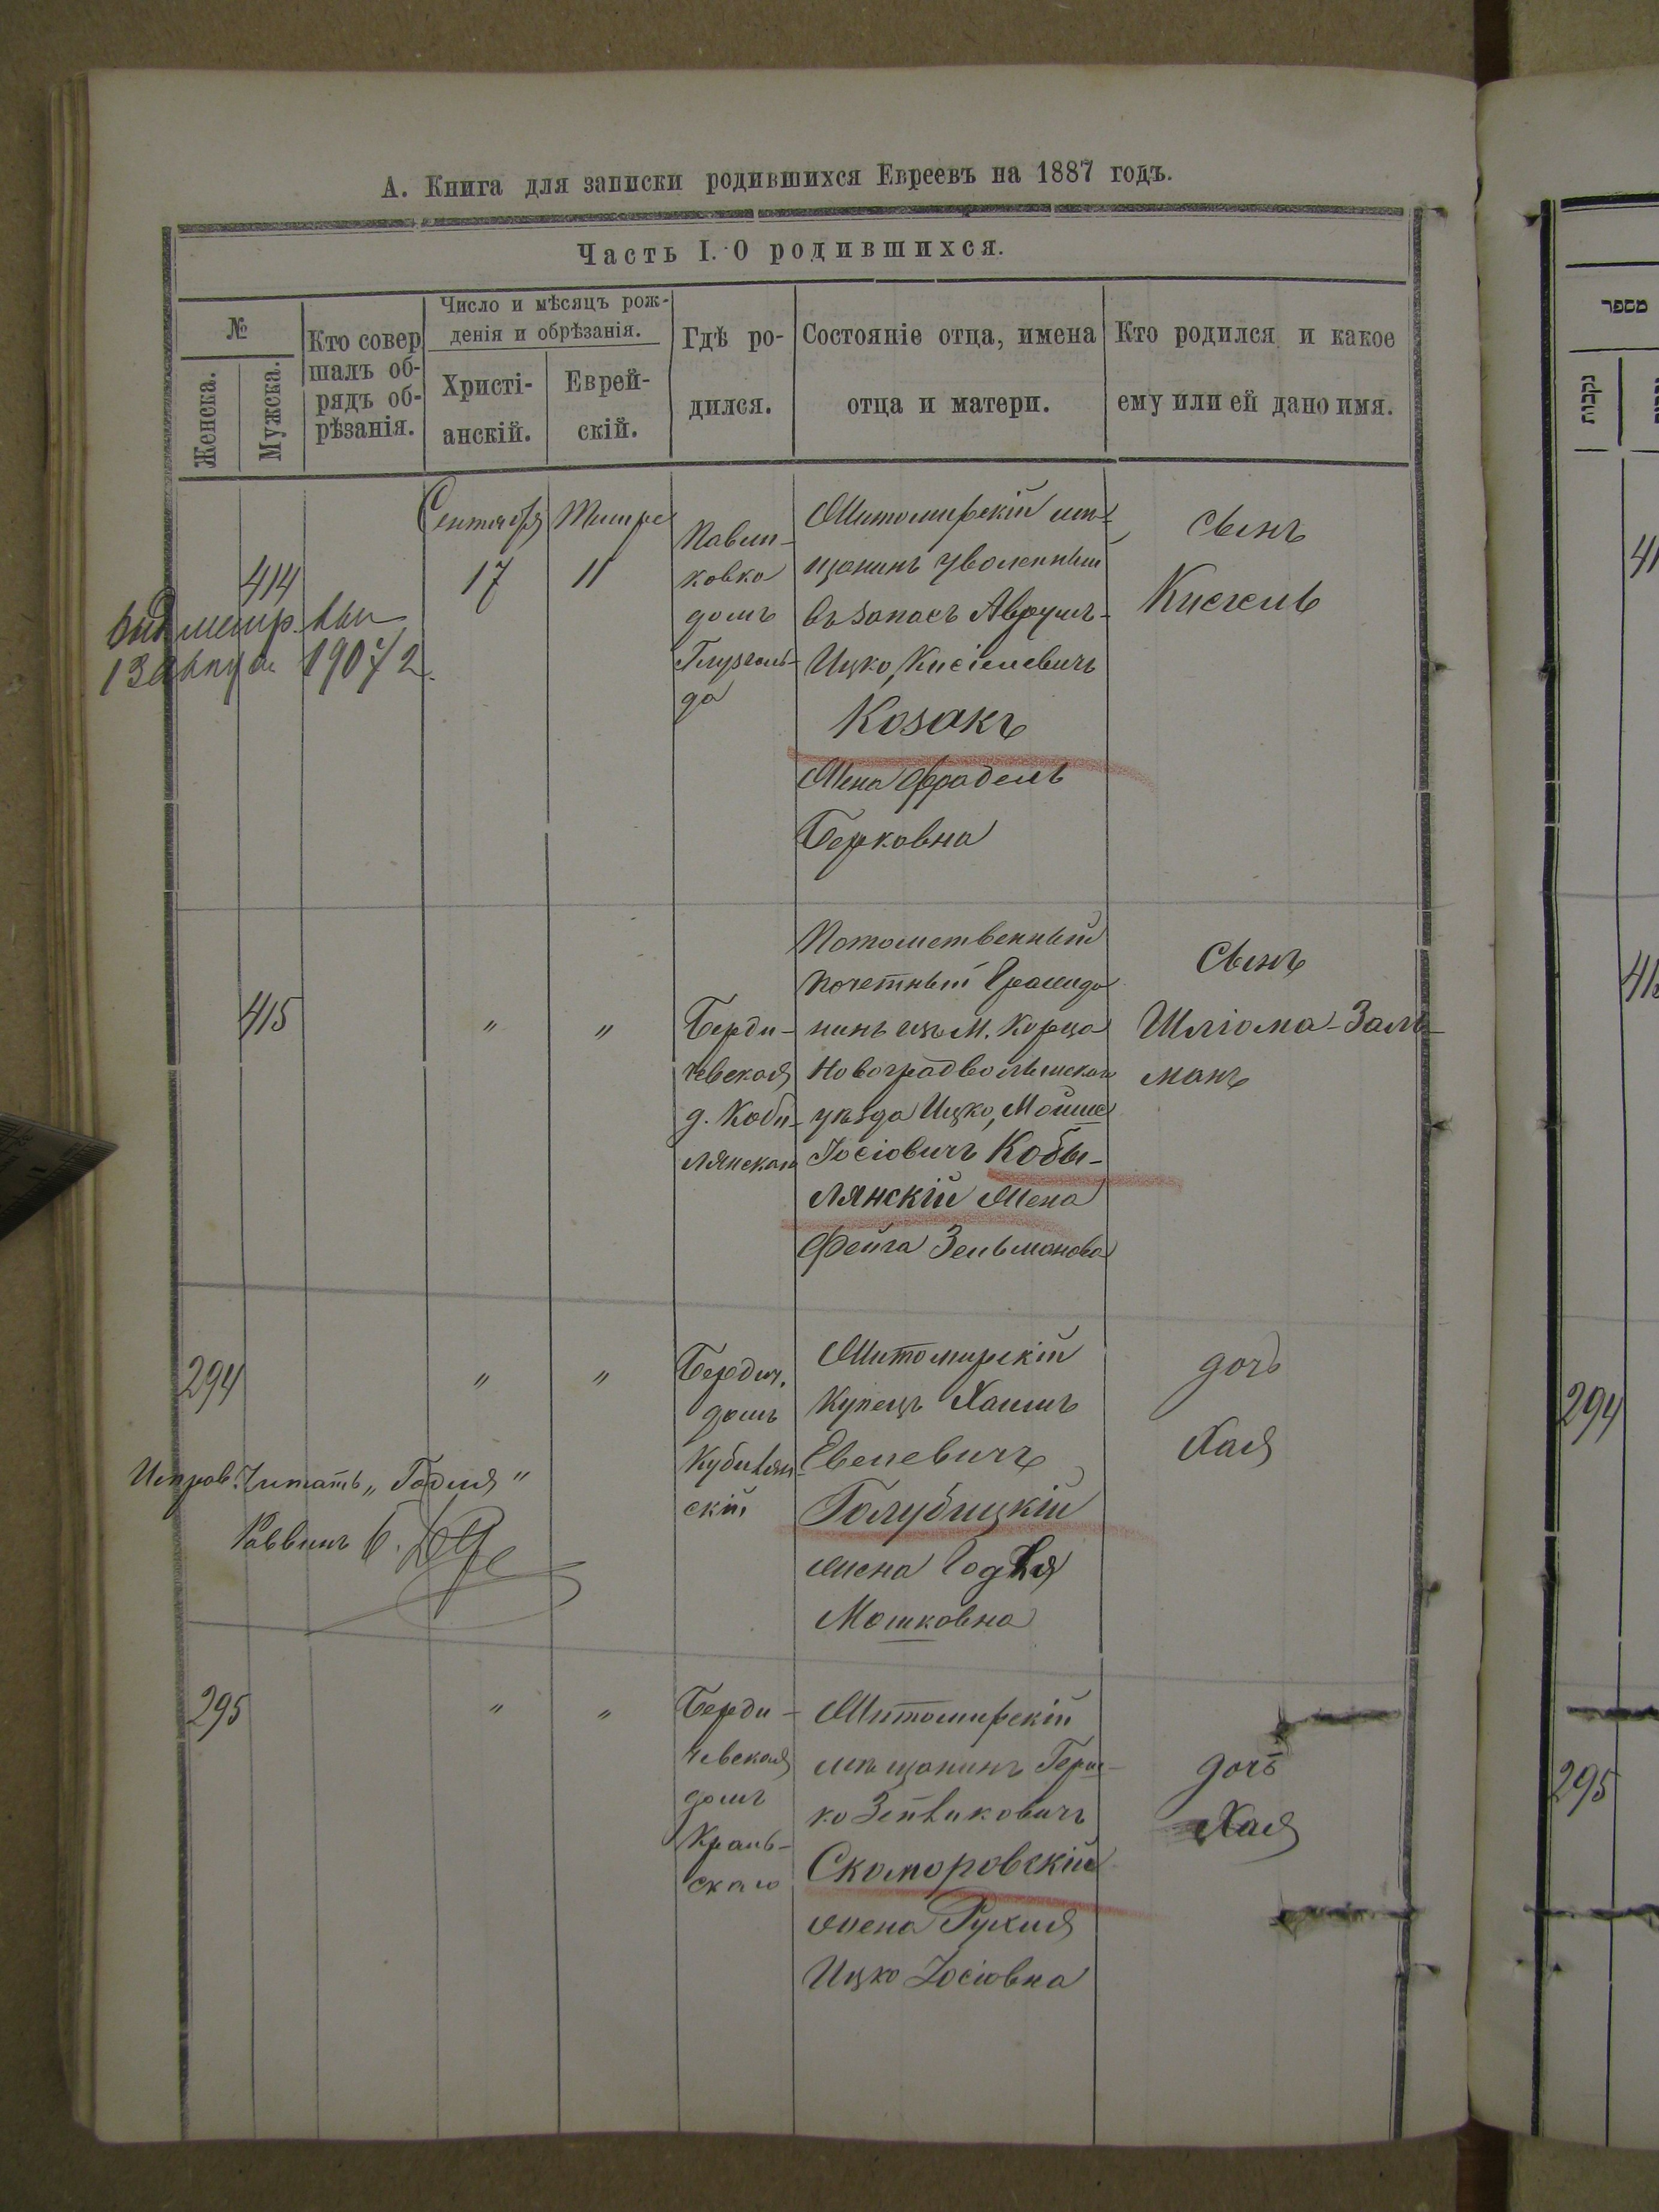 А. Книга для записки родившихся Евреевъ на 1887 годъ.
Часть I. О родившихся.
№
Женска.
Мужска.
Кто совер
шалъ об-
рядъ об-
рѣзанія.
Число и мѣсяцъ рож-
денія и обрѣзанія.
Христі-
анскій.
Еврей-
скій.
Гдѣ ро-
дился.
Состояніе отца, имена
отца и матери.
Кто родился и какое
ему или ей дано имя.
414
метр.
1907 г.
Сентября
17
Тишре
11
Павли-
ковка
домъ
да
Житомирскій мѣ-
щанинъ уволенный
въ запасъ Аврумъ-
Ицко, Кисіелевичъ
Козакъ
Жена Фрадель
Берковна
Сынъ
Кисель
415
"
"
Берди-
чевская
д. Коби-
лянскаго
Потомственный
почетный Гражда
нинъ изъ М. Корца
Новоградволынскаго
уѣзда Ицко, Мойше
Іосіовичъ Кобы-
лянскій Жена
Фейга Зельманова
Сынъ
Шліома-Заль-
манъ
294
"
"
Бердич.
домъ
Кубилян-
скій
Житомирскій
Купецъ Хаимъ
Евелевичъ
Голубицкій
жена Годля
Мошковна
дочь
Хая
Исправ. Читать "Годля"
Раввинъ Б.
295
"
"
Берди-
чевская
домъ
Краль-
скаго
Житомирскій
мѣщанинъ Герш-
ко Зейликовичъ
Скоморовскій
жена Рухля
Ицко Іосіовна
дочь
Хая
מספר
נקבות
41
41
294
295